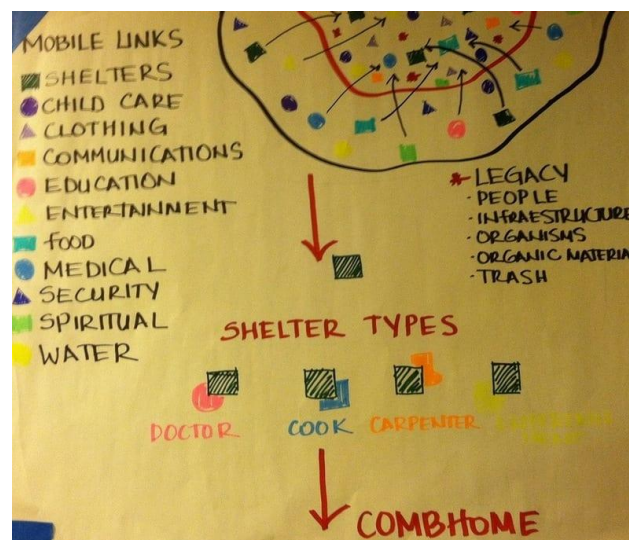 MOBILE LINKS
SHELTERS
CHILD CARE
CLOTHING
COMMUNICATIONS
EDUCATION
ENTERTAINMENT
FOOD
MEDICAL
SECURITY
SPIRITUAL
WATER
LEGACY
· PEOPLE
· INFRAESTRUCTURE
· ORGANISMS
· ORGANIC MATERIA
· TRASH
SHELTER TYPES
DOCTOR
COOK
CARPENTER
COMBHOME